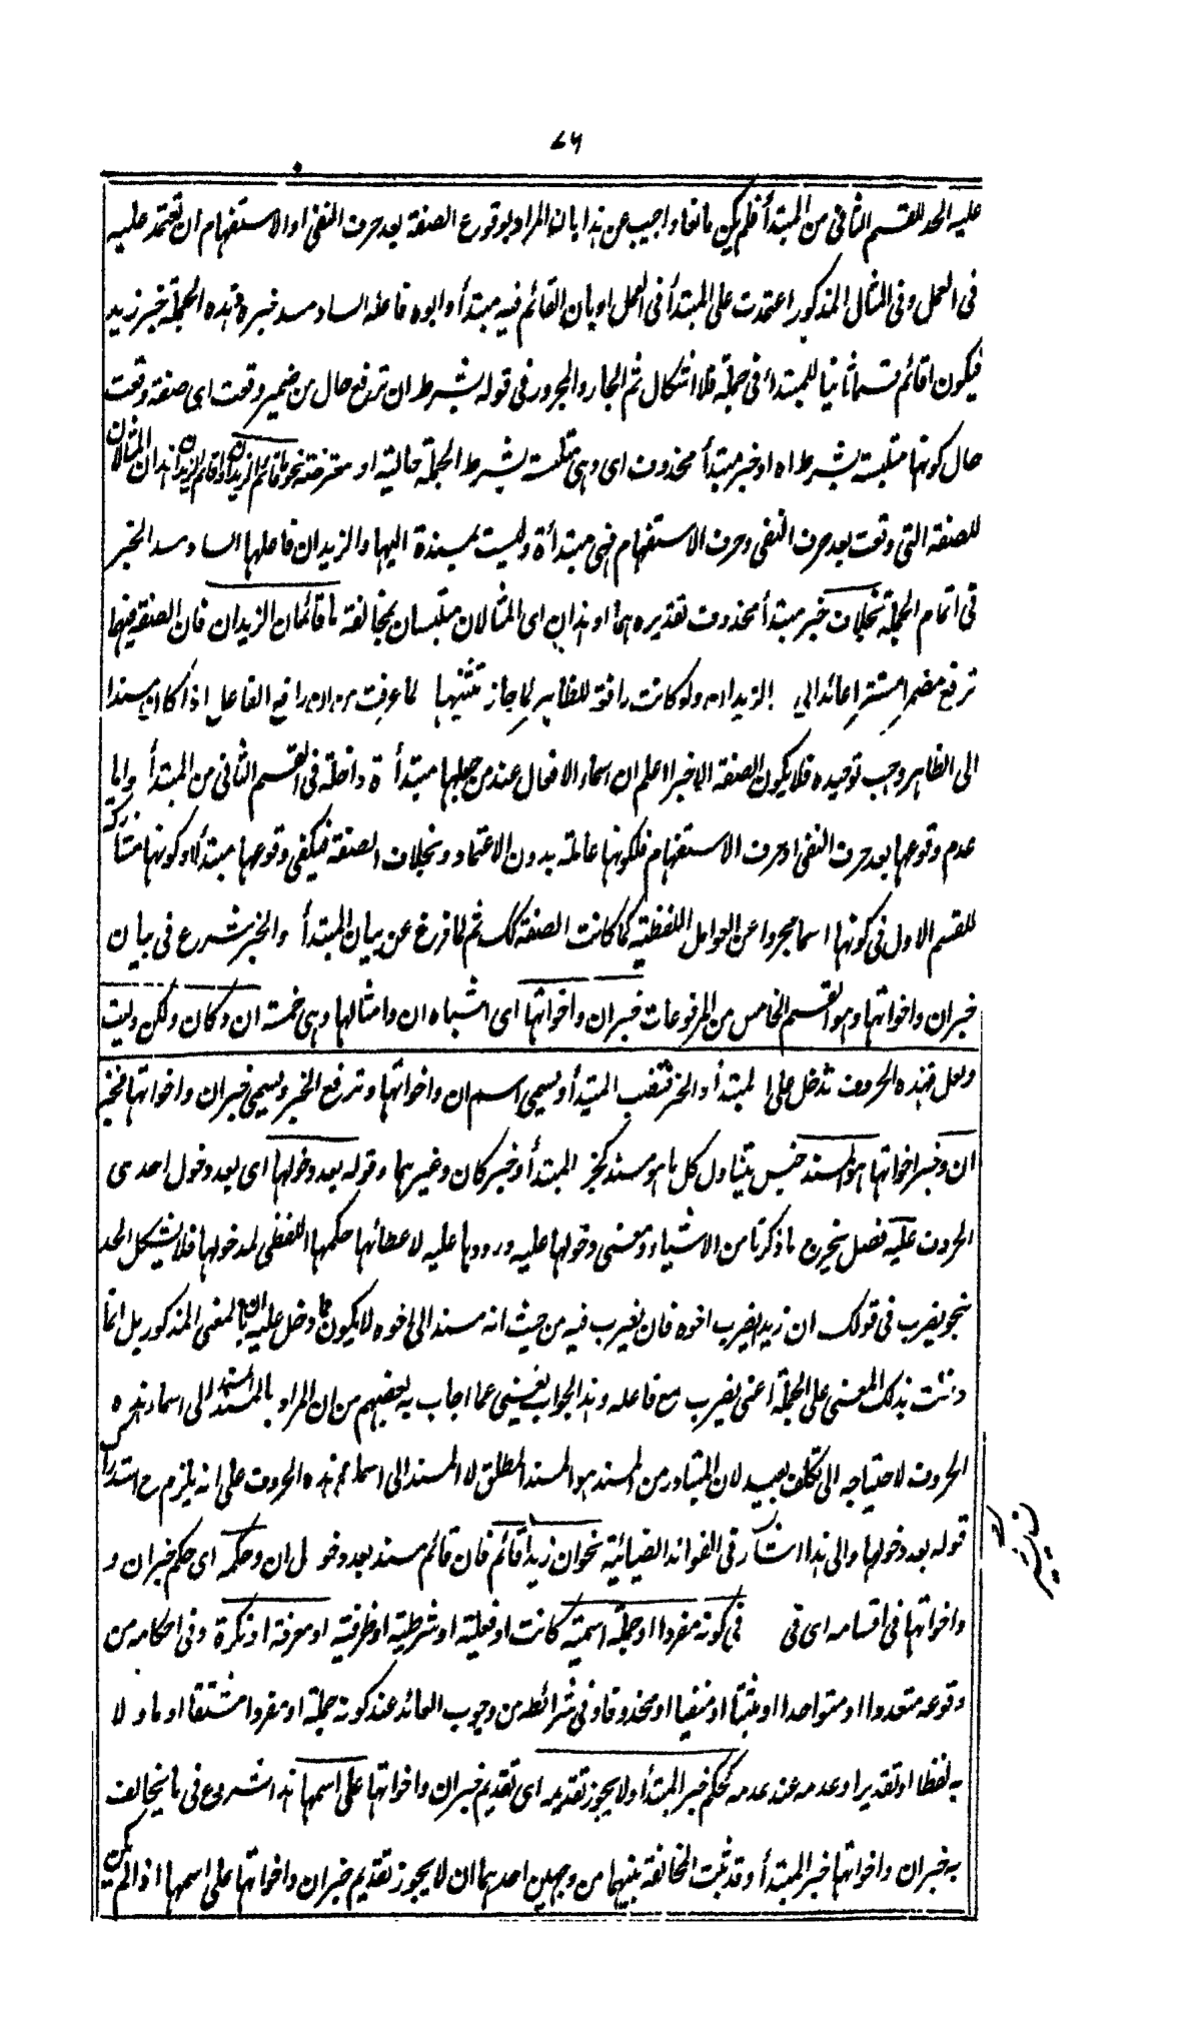 ٧٦
عليه الحد للقسم الثانى من المبتدأ فلم يكن مانعا واجيب عن هذا بان المراد بوقوع الصفة بعد حرف النفى او الاستفهام ان تعتمد عليه
فى العمل وفى المثال المذكور اعتمدت على المبتدأ فى العمل او بان القائم فيه مبتدأ وابوه فاعله الساد مسد خبره وهذه الجملة خبر زيد
فيكون اقائم قسما ثانيا للمبتدأ فى جملة فلا اشكال ثم الجار والمجرور فى قوله بشرط ان ترفع حال من ضمير وقعت اى صفة وقعت
حال كونها متلبسة بشرط اه او خبر مبتدأ محذوف اى وهى متلبسة بشرط الجملة حالية او معترضة نحو ما قائم الزيدان واقائم الزيدان هذان المثالان
للصفة التى وقعت بعد حرف النفى وحرف الاستفهام فهى مبتدأة وليست بمسندة اليها والزيدان فاعلها الساد مسد الخبر
فى اتمام الجملة بخلاف خبر مبتدأ محذوف تقديره هما او هذان اى المثالان متلبسان بمخالفة ما قائمان الزيدان فان الصفة فيها
ترفع مضمرا مستترا عائدا الى الزيدان ولو كانت رافعة للظاهر لما جاز تثنيتها لما عرفت من ان رافع الفاعل اذا كان مسندا
الى الظاهر وجب توحيده فلا يكون الصفة الا خبرا اعلم ان اسماء الافعال عند من جعلها مبتدأة داخلة فى القسم الثانى من المبتدأ واما
عدم وقوعها بعد حرف النفى او حرف الاستفهام فلكونها عاملة بدون الاعتماد وبخلاف الصفة فيكفى وقوعها مبتدأ لا وكونها مشاركة
للقسم الاول فى كونها اسما مجردا عن العوامل اللفظية كما كانت الصفة كك ثم لما فرغ عن بيان المبتدأ والخبر شرع فى بيان
خبر ان واخواتها وهو القسم الخامس من المرفوعات خبر ان واخواتها اى اشباه ان وامثالها وهى خمسة ان وكان ولكن وليت
ولعل فهذه الحروف تدخل على المبتدأ والخبر فتنصب المبتدأ ويسمى اسم ان واخواتها وترفع الخبر ويسمى خبر ان واخواتها فخبر
ان وخبر اخواتها هو المسند جنس يتناول كل ما هو مسند كخبر المبتدأ وخبر كان وغيرهما وقوله بعد دخولها اى بعد دخول احدى
الحروف عليه فصل يخرج ما ذكرنا من الاشياء ومعنى دخولها عليه ورودها عليه لاعطائها حكمها اللفظى لمدخولها فلا يشكل الحد
بنحو يضرب فى قولك ان زيدا يضرب اخوه فان يضرب فيه من حيث انه مسند الى اخوه لا يكون مما دخل عليه ان بالمعنى المذكور بل انما
دخلت بذلك المعنى على الجملة اعنى يضرب مع فاعله وهذا الجواب يغنى عما اجاب به بعضهم من ان المراد بالمسند المسند الى اسماء هذه
الحروف لاحتياجه الى تكلف بعيد لان المتبادر من المسند هو المسند المطلق لا المسند الى اسماء هذه الحروف على انه يلزم ح استدراك
قوله بعد دخولها والى هذا اشار فى الفوائد الضيائية نحو ان زيدا قائم فان قائم مسند بعد دخول ان وحكمه اى حكم خبر ان و
واخواتها فى اقسامه اى فى فى كونه مفردا او جملة اسمية كانت او فعلية او شرطية او ظرفية او معرفة او نكرة وفى احكامه من
وقوعه متعددا او متواحدا او مثبتا او منفيا او محذوفا وفى شرائطه من وجوب العائد عند كونه جملة او مفردا مشتقا او ماولا
به لفظا او تقديرا وعدمه عند عدمه كحكم خبر المبتدأ ولا يجوز تقديمه اى تقديم خبر ان واخواتها على اسمها هذا شروع فى ما يخالف
به خبر ان واخواتها خبر المبتدأ وقد ثبت المخالفة بينهما من وجهين احدهما ان لا يجوز تقديم خبر ان واخواتها على اسمها اذا لم يكن